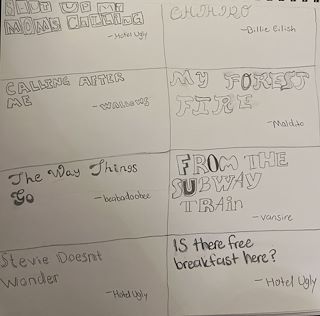 SHUT UP MY
MOMS CALLING
-Hotel Ugly
CHIHIRO
-Billie Eilish
CALLING AFTER
ME
-WALLOWS
MY FOREST
FIRE
-Maldito
The Way Things
Go
-beabadoobee
FROM THE
SUBWAY
TRAin
-Vansire
Stevie Doesnt
Wonder
-Hotel Ugly
Is there free
breakfast here?
-Hotel Ugly